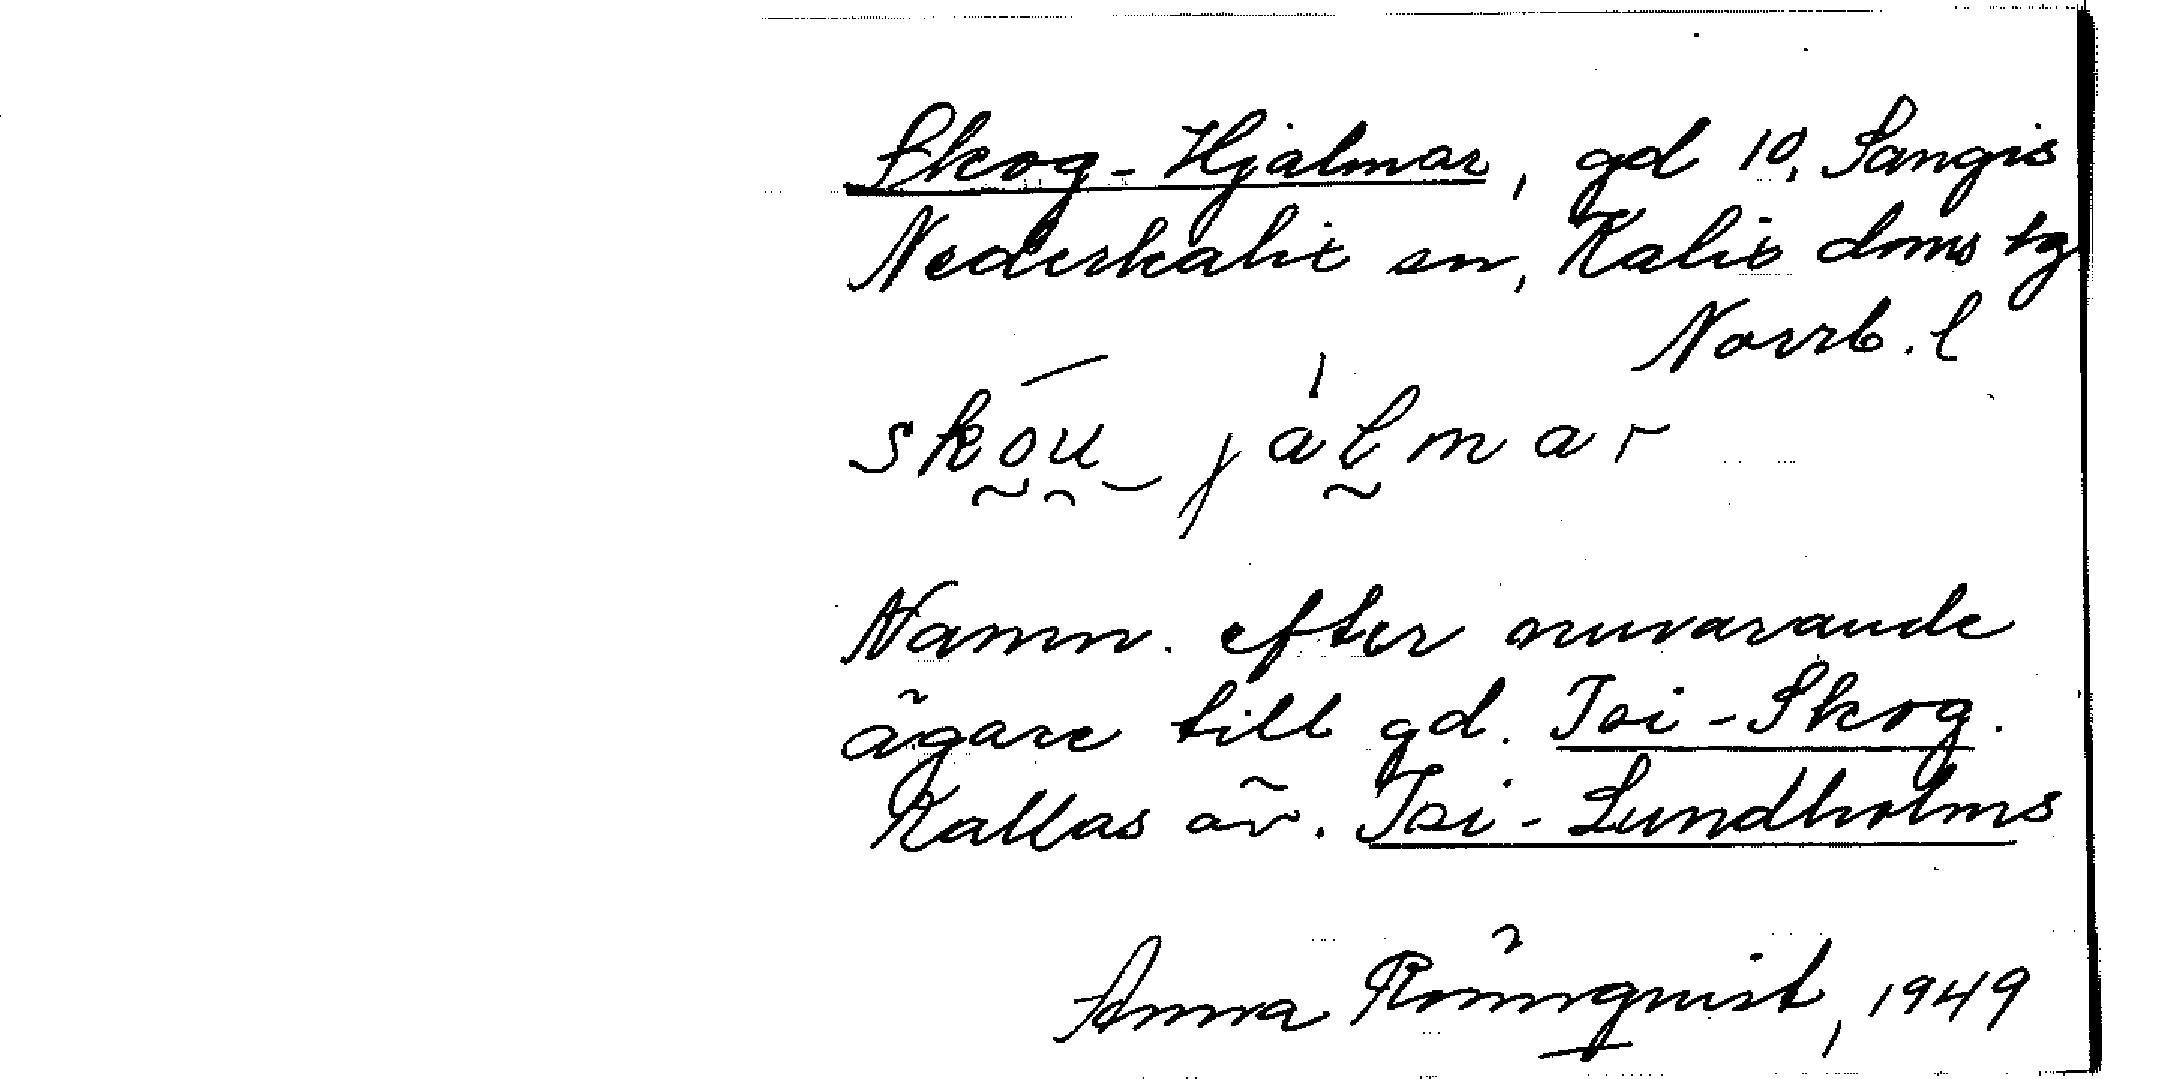 Skog-Hjalmar, gd 10, Sangis
Nederkalix sn, Kalix doms tg
Norrb. l
skou jalmar
Namn. efter nuvarande
ägare till gd. Isi-Skog.
Kallas äv. Isi-Lundholms
Anna Rönnqvist, 1949